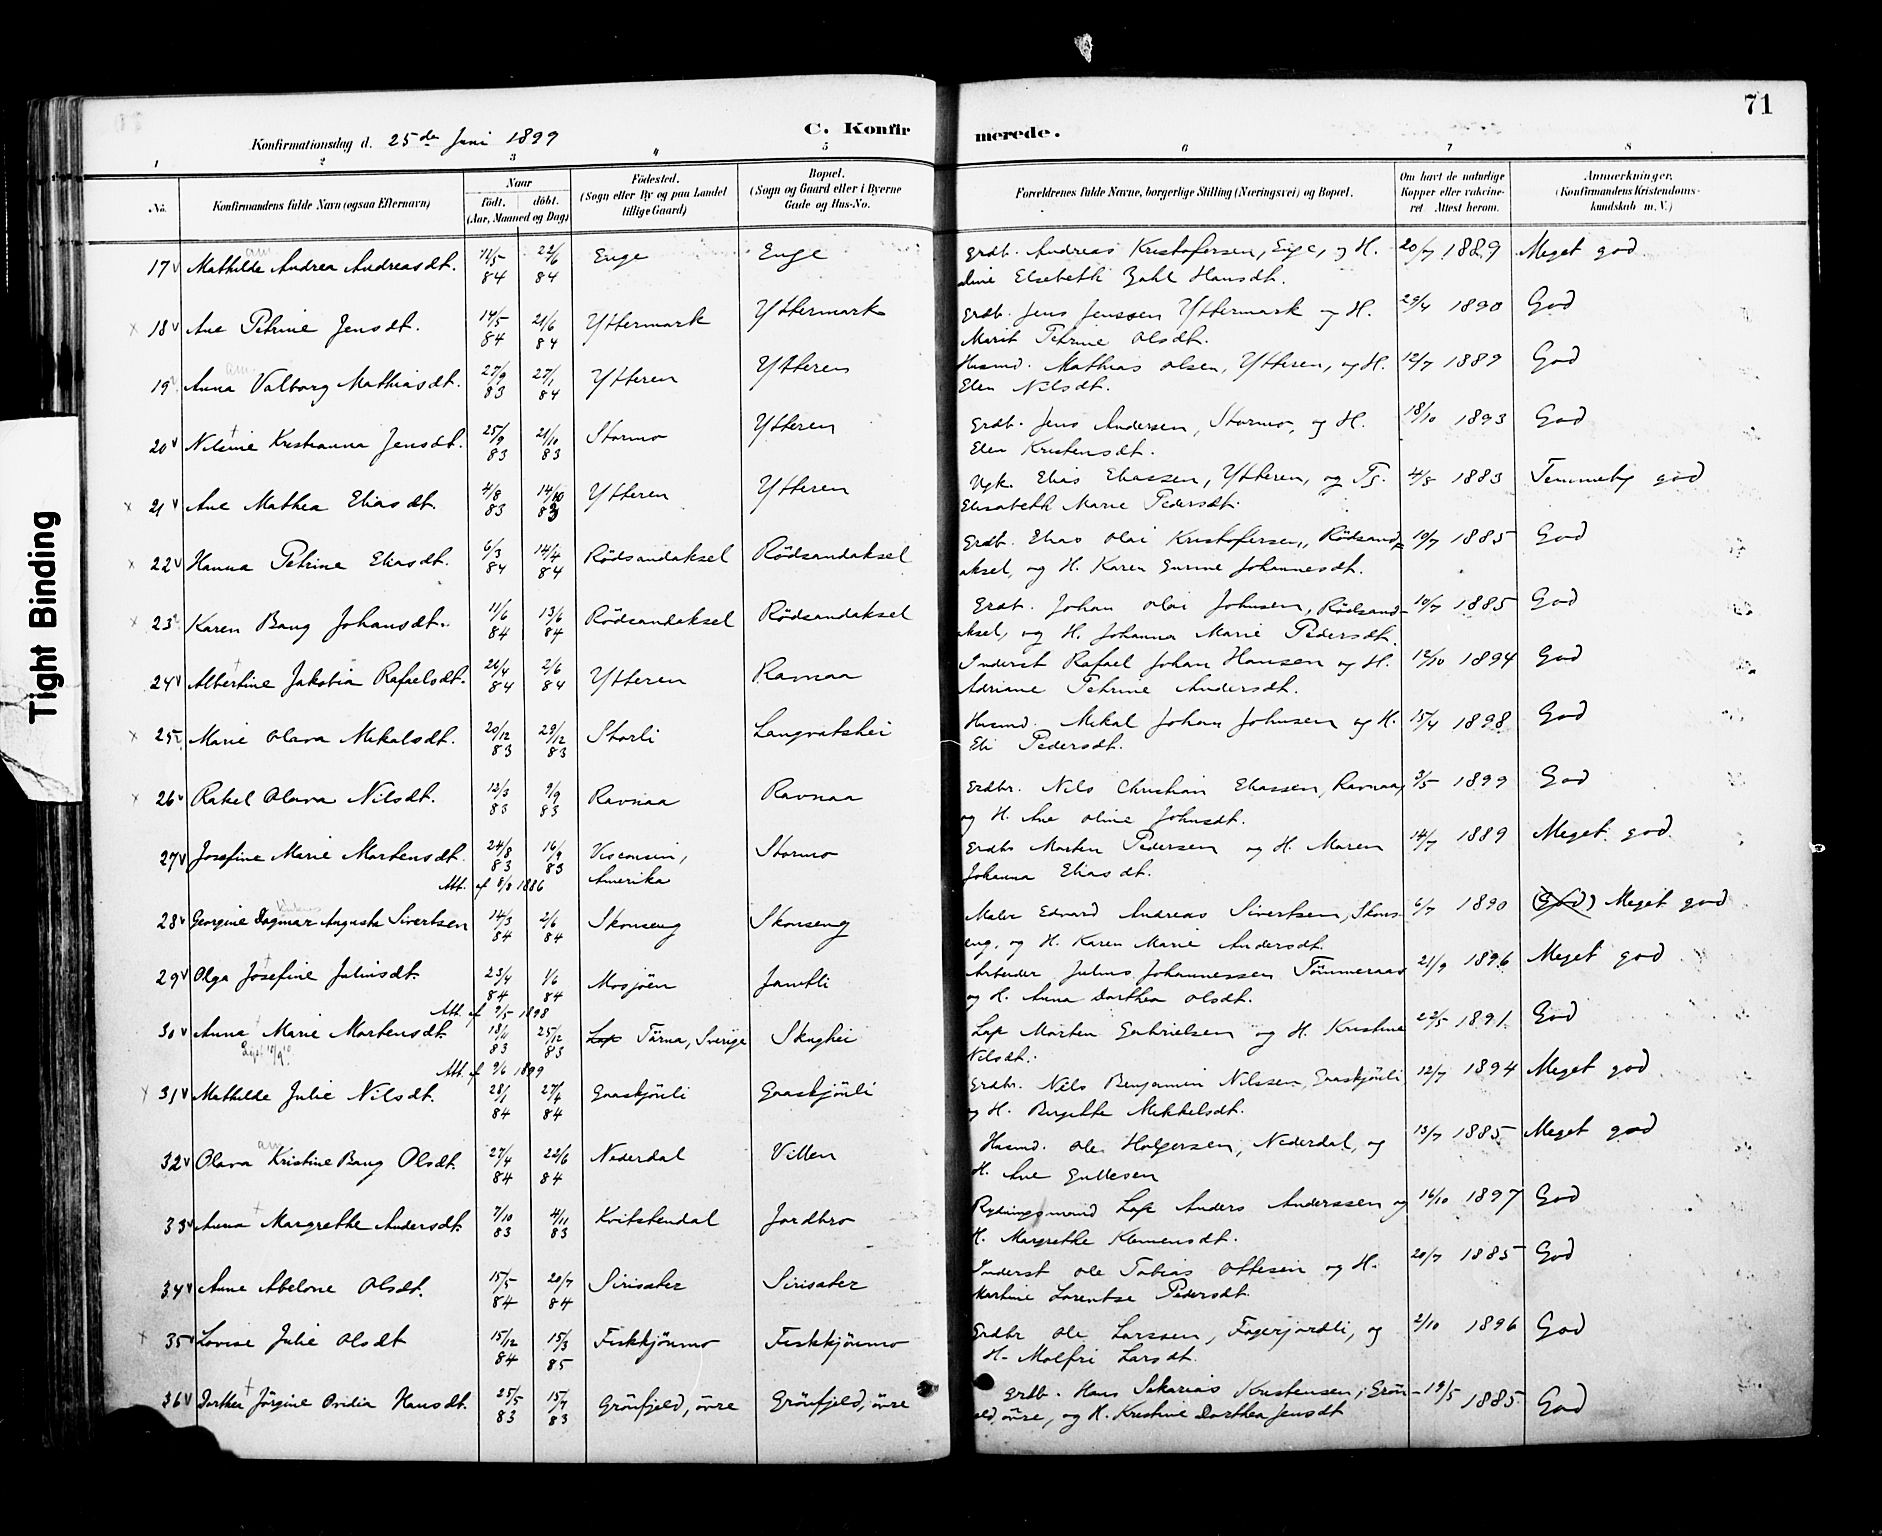 71
C. Konfirmerede.
Konfirmationsdag d. 25de Juni 1899
1 2 3 4 5 6 7 8
No.
Konfirmandens fulde Navn (ogsaa Efternavn)
Naar
födt. döbt.
(Aar, Maaned og Dag)
Födested.
(Sogn eller By og paa Landet
tillige Gaard)
Bopæl.
(Sogn og Gaard eller i Byerne
Gade og Hus-No.
Forældrenes fulde Navne, borgerlige Stilling (Næringsvei) og Bopæl.
Om havt de naturlige
Kopper eller vaccine-
ret. Attest herom.
Anmærkninger.
(Konfirmandens Kristendoms-
kundskab m. V.)
17 Mathilde Andrea Andreasdt. 84 22/6 84 Enge Enge Grdb. Andreas Kristofersen, Enge, og H. 20/7 1889 Meget god
Elsebeth Zahl Hansdt.
18 Ane Petrine Jensdt. 14/5 84 21/6 84 Yttermark Yttermark Grdb. Jens Jenssen Yttermark og H. 29/4 1890 God
Marit Petrine Olsdt.
19 Anna Valborg Mathiasdt. 27/9 83 27/1 84 Ytteren Ytteren Husmd. Mathias Olsen, Ytteren, og H. 12/7 1889 God
Elen Nilsdt.
20 Nilsine Kristianna Jensdt. 25/9 83 21/10 83 Stormo Ytteren Grdb. Jens Andersen, Stormo, og H. 18/10 1893 God
Elen Kristensdt.
21 Ane Mathea Eliasdt. 4/8 83 14/10 83 Ytteren Ytteren Ugk. Elias Eliassen, Ytteren, og Pg. 4/8 1883 Temmelig god
Elisabeth Marie Pedersdt.
22 Hanna Petrine Eliasdt. 6/3 84 14/4 84 Rödsandaksel Rödsandaksel Grdb. Elias Olai Kristofersen, Rödsand- 10/7 1885 God
aksel, og H. Karen Gurine Johannesdt.
23 Karen Bang Johansdt. 11/6 84 13/6 84 Rödsandaksel Rödsandaksel Grdb. Johan Olai Johnsen, Rödsand- 10/7 1885 God
aksel, og H. Johanna Marie Pedersdt.
24 Albertine Jakobia Rafaelsdt. 26/4 84 2/6 84 Ytteren Ravnaa Inderst Rafael Johan Hansen og H. 12/10 1894 God
Adriane Petrine Andersdt.
25 Marie Olava Mikalsdt. 20/12 83 29/12 83 Storli Langvatshei Husmd. Mikal Johan Johnsen og H. 15/4 1898 God
Eli Pedersdt.
26 Rakel Olava Nilsdt. 12/3 83 9/9 83 Ravnaa Ravnaa Grdbr. Nils Christian Eliassen, Ravnaa, 3/5 1899 God
og H. Ane Oline Johnsdt.
27 Josefine Marie Martensdt. 24/8 83 16/9 83 Visconsin, Stormo Grdbr Morten Pedersen og H. Maren 14/7 1889 Meget god
Att. af 8/8 1886 Amerika Johanna Eliasdt.
28 Georgine Dagmar Augusta Sivertsen 14/3 84 2/6 84 Skonseng Skonseng Maler Edvard Andreas Sivertsen, Skons- 6/7 1890 (God) Meget god
eng, og H. Karen Marie Andersdt.
29 Olga Josefine Juliusdt. 23/4 84 1/6 84 Mosjöen Jamtli Arbeider Julius Johannessen Tömmeraas 21/9 1896 Meget god
Att. af 9/5 1898 og H. Anna Dorthea Olsdt.
30 Anna Marie Mortensdt. 83 25/12 83 Lap Tärna, Sverige Skughei Lap Morten Gabrielsen og H. Kristine 22/5 1891 God
Att. af 9/6 1899 Nilsdt.
31 Mathilde Julie Nilsdt. 28/1 84 27/4 84 Graaskjönli Graaskjönli Grdbr. Nils Benjamin Nilssen, Graaskjönli, 12/7 1894 Meget god
og H. Birgitte Mikkelsdt.
32 Olava Kristine Bang Olsdt. 27/4 84 22/6 84 Nederdal Villen Husmd. Ole Holgersen, Nederdal, og 13/7 1885 Meget god
H. Ane Gullesen
33 Anna Margrethe Andersdt. 7/10 83 4/11 83 Kvitstendal Jordbro Rydningsmand Lap Anders Anderssen og 16/10 1897 God
H. Margrethe Klemensdt.
34 Anne Abelone Olsdt. 15/5 84 20/7 84 Sirisæter Sirisæter Inderst Ole Tobias Ottesen og H. 20/7 1885 God
Martine Lorentze Pedersdt.
35 Lovise Julie Olsdt 15/12 84 15/3 85 Fiskkjönmo Fiskkjönmo Grdbr Ole Larssen, Fagerjordli, og 2/10 1896 God
H. Malfri Larsdt.
36 Dorthea Jörgine Ovidia Hansdt. 25/5 83 15/7 83 Grönfjeld, övre Grönfjeld, övre Grdb. Hans Sakarias Kristensen, Grön- 19/5 1885 God
övre, og H. Kristine Dorthea Jensdt
Tight Binding